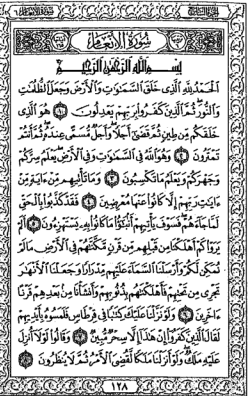 سورة الأنعام
بسم الله الرحمن الرحيم
الحمد لله الذي خلق السموات والأرض وجعل الظلمت
والنور ثم الذين كفروا بربهم يعدلون ١ هو الذي
خلقكم من طين ثم قضى أجلا وأجل مسمى عنده ثم أنتم
تمترون ٢ وهو الله في السموات وفي الأرض يعلم سركم
وجهركم ويعلم ما تكسبون ٣ وما تأتيهم من ءاية من
ءايت ربهم إلا كانوا عنها معرضين ٤ فقد كذبوا بالحق
لما جاءهم فسوف يأتيهم أنبؤا ما كانوا به يستهزءون ٥ ألم
يروا كم أهلكنا من قبلهم من قرن مكنهم في الأرض ما لم
نمكن لكم وأرسلنا السماء عليهم مدرارا وجعلنا الأنهر
تجري من تحتهم فأهلكنهم بذنوبهم وأنشأنا من بعدهم قرنا
ءاخرين ٦ ولو نزلنا عليك كتبا في قرطاس فلمسوه بأيديهم
لقال الذين كفروا إن هذا إلا سحر مبين ٧ وقالوا لولا أنزل
عليه ملك ولو أنزلنا ملكا لقضي الأمر ثم لا ينظرون ٨
١٢٨